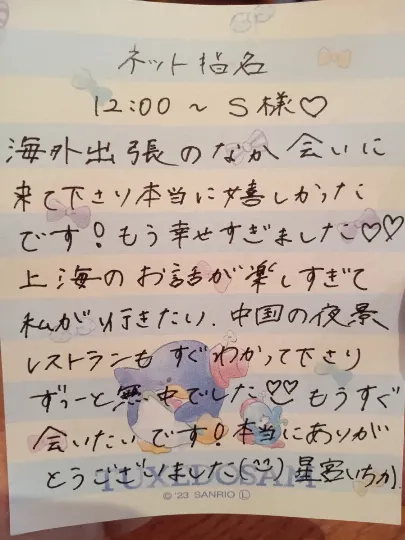 ネット指名
12:00 ~ S様♡
海外出張のなか会いに
来て下さり本当に嬉しかった
です!もう幸せすぎました♡♡
上海のお話が楽しすぎて
私が行きたい、中国の夜景
レストランもすぐわかって下さり
ずぅーと夢中でした♡♡もうすぐ
会いたいです!本当にありが
とうございました(¨̮) 星宮いちか
TUXEDOSAM
© '23 SANRIO Ⓛ